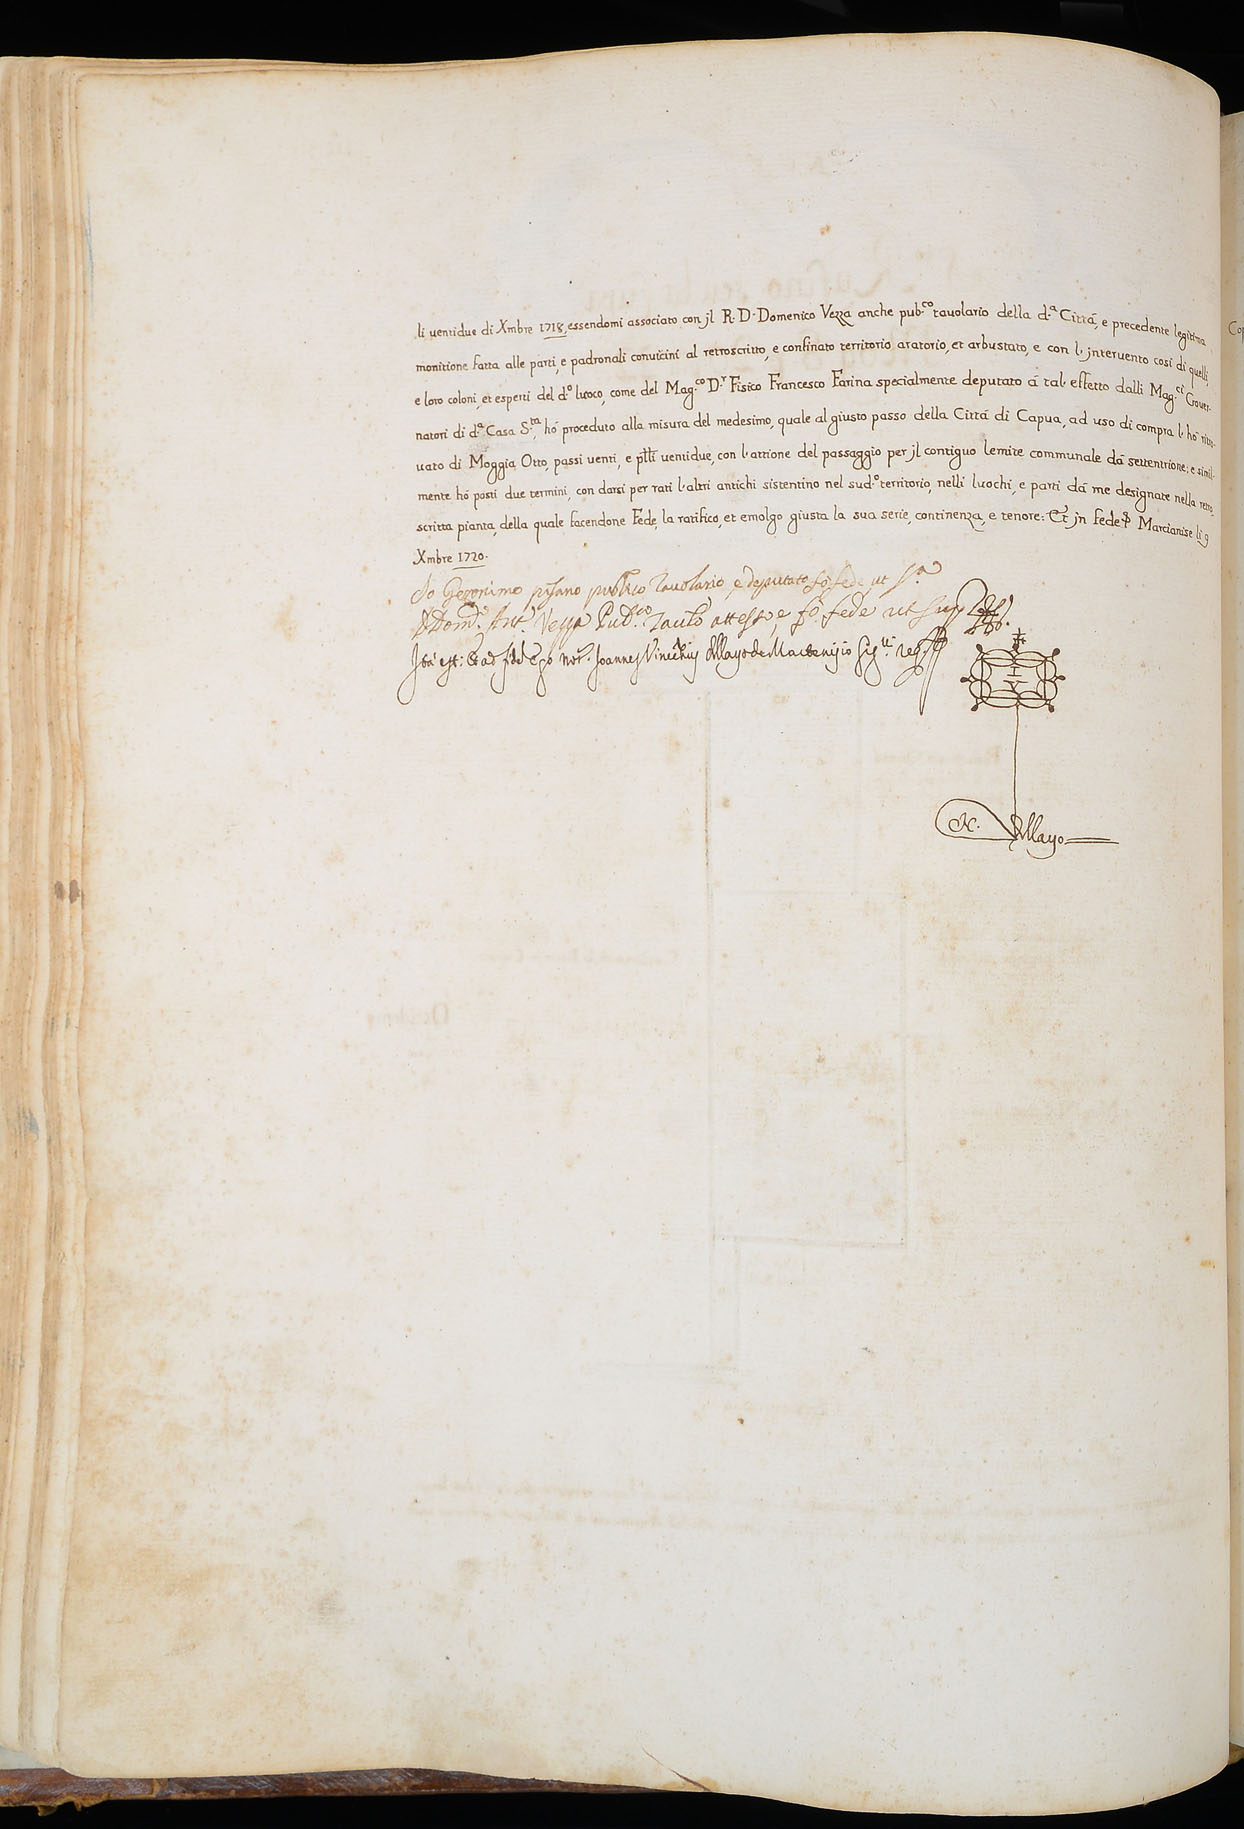 li ventidue di Xmbre 1718, essendomi associato con jl R. D. Domenico Vezza anche pub.co tavolario della d.a Cittá, e precedente legitima
monitione fatta alle parti, e padronali convicini al retroscritto, e confinato territorio aratorio, et arbustato, e con l'intervento cosi di quelli,
e loro coloni, et esperti del d.o luoco, come del Mag.co D.r Fisico Francesco Farina specialmente deputato á tal' effetto dalli Mag.ci Gover-
natori di d.a Casa S.ta, hó proceduto alla misura del medesimo, quale al giusto passo della Cittá di Capua, ad uso di compra l'hó ritro-
vato di Moggia Otto, passi venti, e ptlli ventidue, con l'attione del passaggio per jl contiguo lemite communale dá settentrione: e simil-
mente hó posti due termini, con darsi per rati l'altri antichi sistentino nel sud.o territorio, nelli luochi, e parti dá me designate nella retro-
scritta pianta, della quale facendone Fede, la ratifico, et emolgo giusta la sua serie, continenza, e tenore: Et jn fede Marcianise li 9
Xmbre 1720.
Io Geronimo pisano publico Tavolario, e deputato fó fede ut s.a
D Dom.o Ant.o Vezza Pub.co Taul.o attesto, e fó fede ut sup.
Ita est: Et ad fidem Ego Not. Joannes Vincentius de Mayo de Marcenisio sig.vi req.s
I V
N. de Mayo
Cop